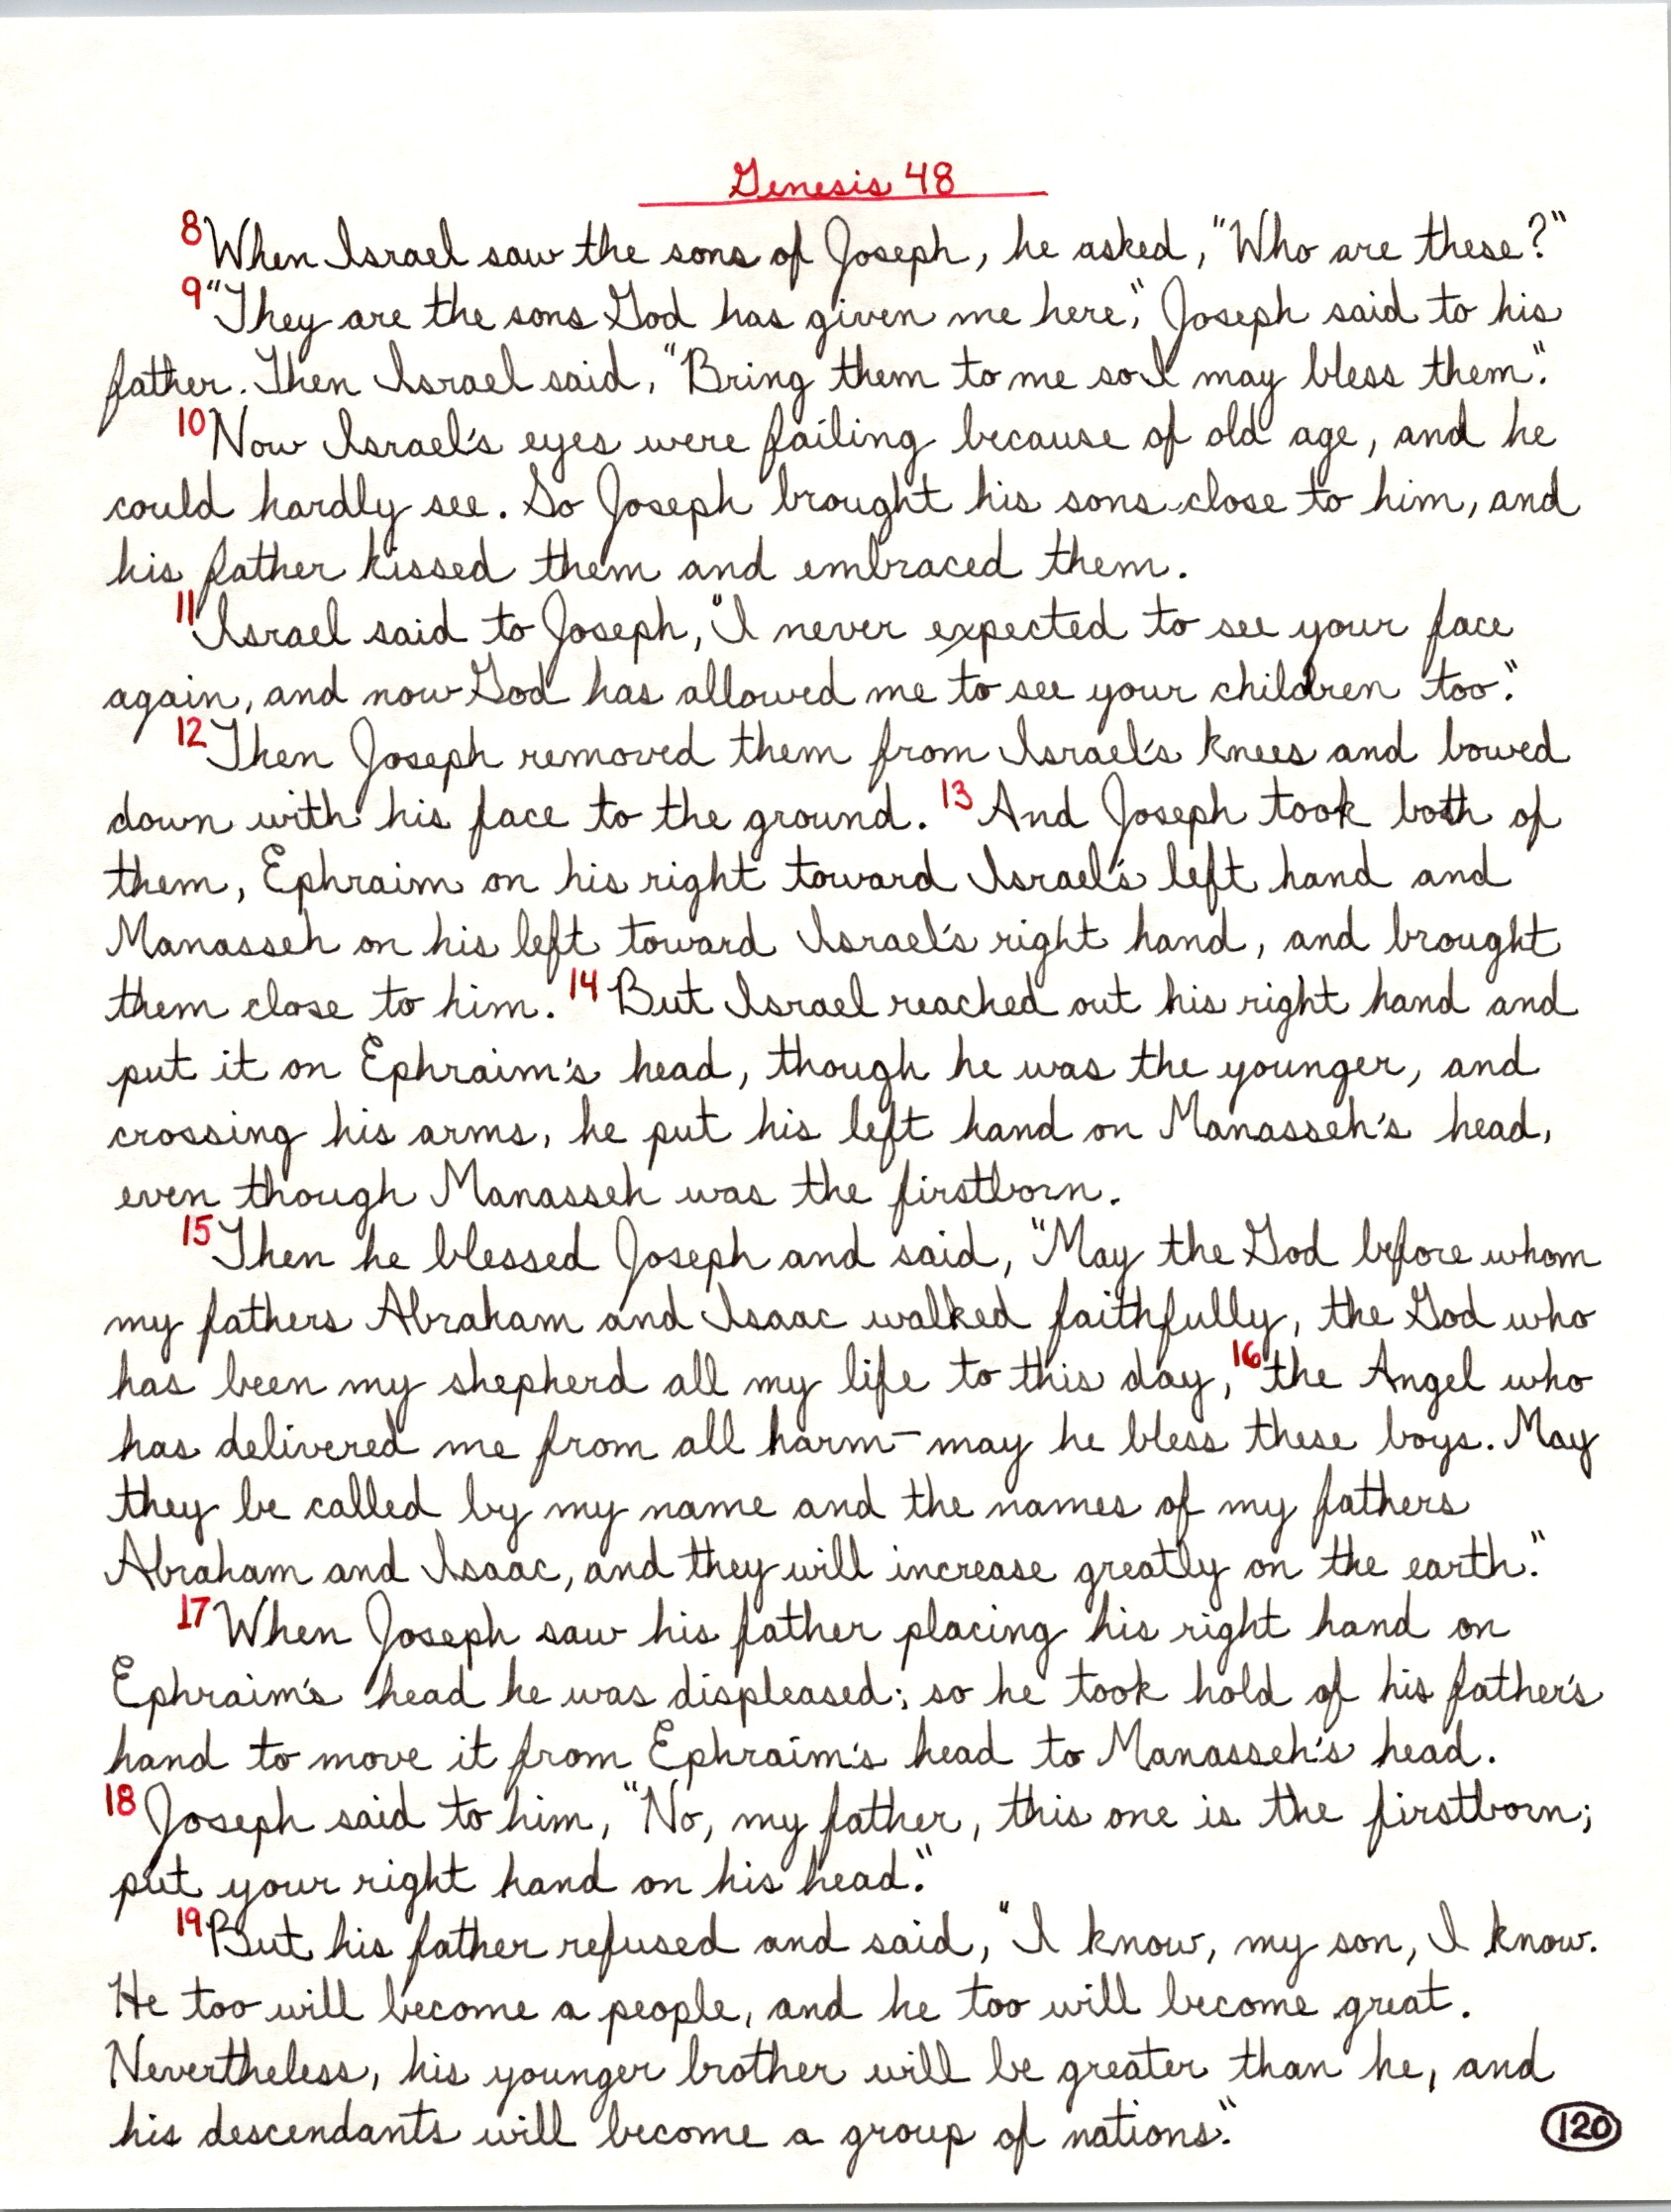 Genesis 48
8 When Israel saw the sons of Joseph, he asked, "Who are these?"
9 "They are the sons God has given me here," Joseph said to his
father. Then Israel said, "Bring them to me so I may bless them."
10 Now Israel's eyes were failing because of old age, and he
could hardly see. So Joseph brought his sons close to him, and
his father kissed them and embraced them.
11 Israel said to Joseph, "I never expected to see your face
again, and now God has allowed me to see your children too."
12 Then Joseph removed them from Israel's knees and bowed
down with his face to the ground. 13 And Joseph took both of
them, Ephraim on his right toward Israel's left hand and
Manasseh on his left toward Israel's right hand, and brought
them close to him. 14 But Israel reached out his right hand and
put it on Ephraim's head, though he was the younger, and
crossing his arms, he put his left hand on Manasseh's head,
even though Manasseh was the firstborn.
15 Then he blessed Joseph and said, "May the God before whom
my fathers Abraham and Isaac walked faithfully, the God who
has been my shepherd all my life to this day, 16 the Angel who
has delivered me from all harm—may he bless these boys. May
they be called by my name and the names of my fathers
Abraham and Isaac, and they will increase greatly on the earth."
17 When Joseph saw his father placing his right hand on
Ephraim's head he was displeased; so he took hold of his father's
hand to move it from Ephraim's head to Manasseh's head.
18 Joseph said to him, "No, my father, this one is the firstborn;
put your right hand on his head."
19 But his father refused and said, "I know, my son, I know.
He too will become a people, and he too will become great.
Nevertheless, his younger brother will be greater than he, and
his descendants will become a group of nations."
120